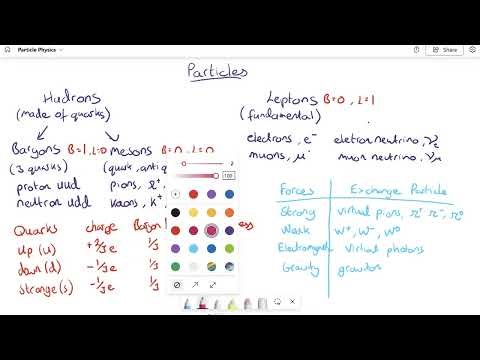 Particle Physics
Share
Particles
Hadrons
(made of quarks)
Baryons B=1, L=0
(3 quarks)
proton uud
neutron udd
Mesons B=0, L=0
(quark, antiq
pions, π⁺
kaons, K⁺
Leptons B=0, L=1
(fundamental)
electrons, e⁻ eletron neutrino, νe
muons, μ⁻ muon neutrino, νμ
100
Quarks charge Baryon ess
up (u) +⅔e ⅓
down (d) -⅓e ⅓
strange (s) -⅓e ⅓
Forces Exchange Particle
Strong virtual pions, π⁺ π⁻, π⁰
Weak W⁺, W⁻, W⁰
Electromagnetic virtual photons
Gravity graviton